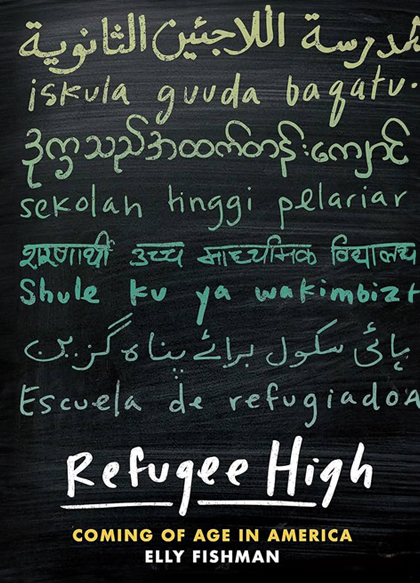 مدرسة اللاجئين الثانوية
iskula guuda baqatu.
ဒုက္ခသည်အထက်တန်းကျောင်
sekolah tinggi pelariar
शरणार्थी उच्च माध्यमिक विद्यालय
Shule ku ya wakimbizi
ہائی سکول برائے پناہ گزین
Escuela de refugiadoA
Refugee High
COMING OF AGE IN AMERICA
ELLY FISHMAN